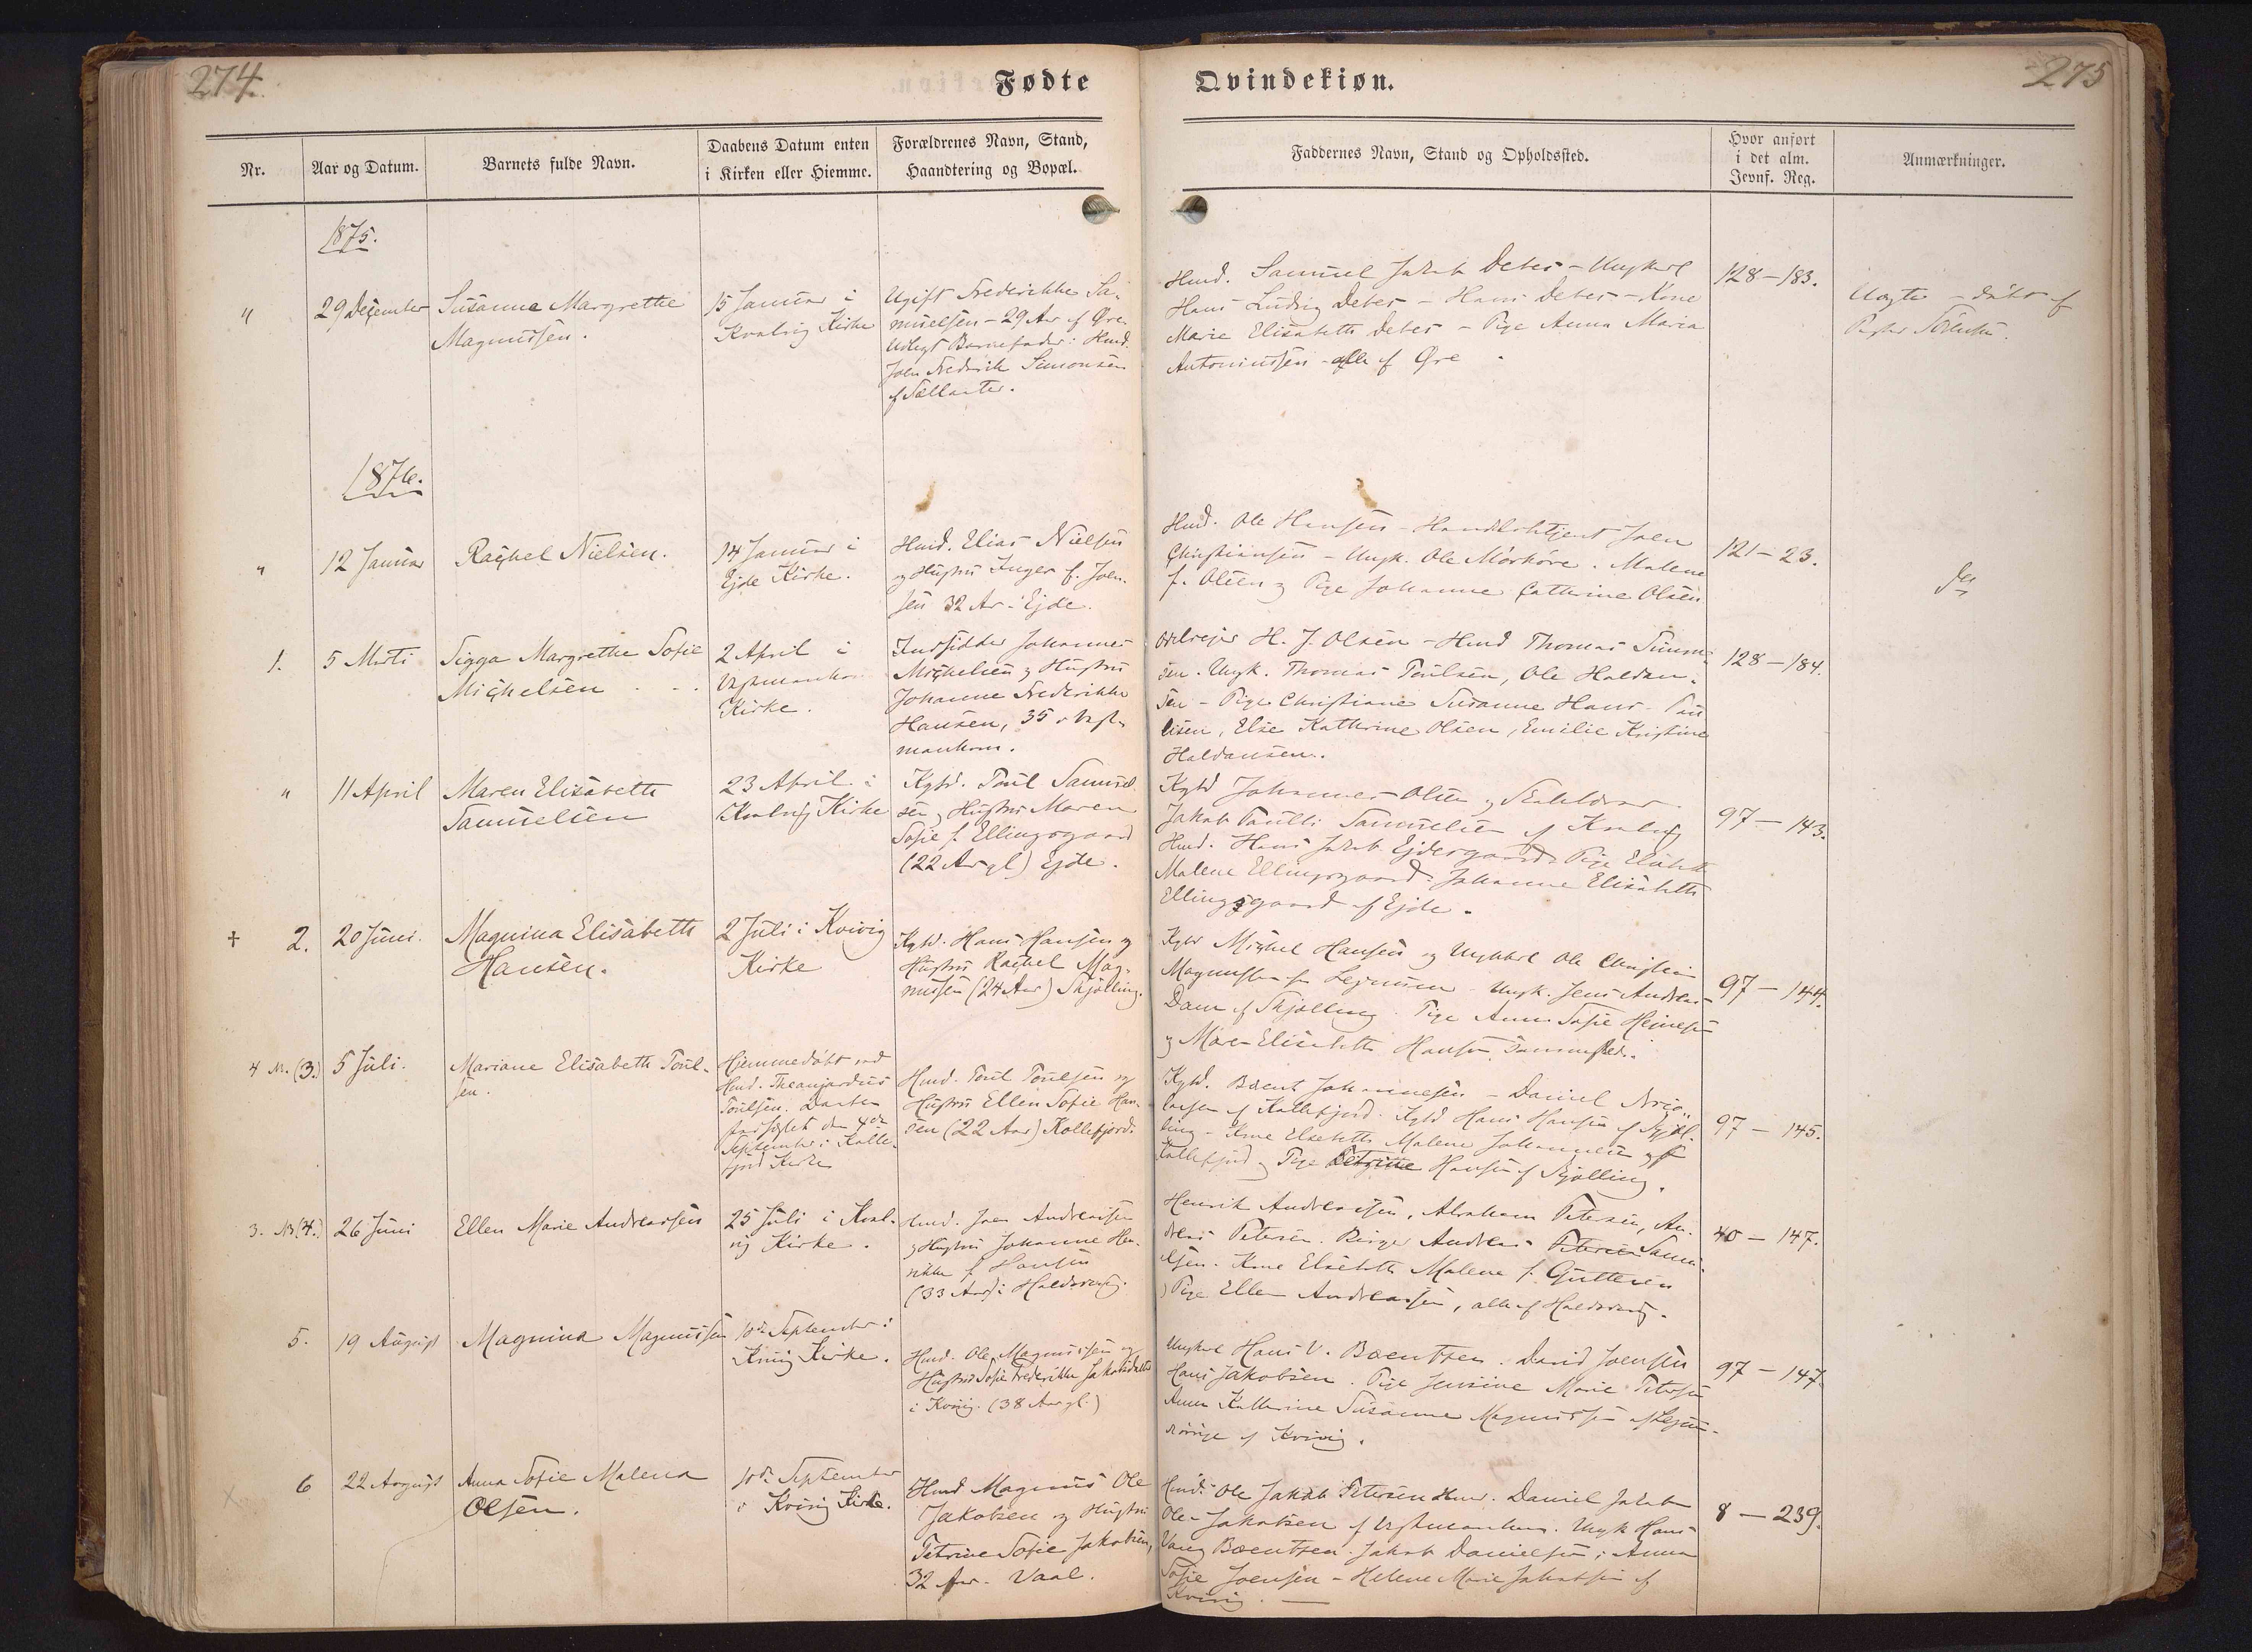 274
Fødte
Qvindekiøn.
275
Nr.
Aar og Datum.
Barnets fulde Navn.
Daabens Datum enten
i Kirken eller Hiemme.
Forældrenes Navn, Stand,
Haandtering og Bopæl.
Faddernes Navn, Stand og Opholdssted.
Hvor anført
i det alm.
Jevnf. Reg.
Anmærkninger.
1875.
"
29 December
Susanna Margrethe
Magnussen.
15 Januar i
Kvalvig Kirke
Ugift Frederikke Sa-
muelsen - 29 Aar af Øre.
Udlagt Barnefader: Hmd.
Joen Frederik Simonsen
af
Hmd. Samuel Jakob Debes - Ungkarl
Hans Ludvig Debes - Hans Debes - Kone
Marie Elisabeth Debes - Pige Anna Maria
Antoniussen - alle af Øre
128-183.
Uægte - døbt af
Pastor Sørensen.
1876.
"
12 Januar
Rachel Nielsen.
14 Januar i
Ejde Kirke.
Hmd. Elias Nielsen
og Hustru Inger f. Joen-
sen 32 Ar i Ejde.
Hmd. Ole Hansen - Joen
Christiansen - Ungk. Ole Mörköre. Malene
f. Olsen og Pige Johanne Cathrine Olsen
121-23.
1.
5 Marts
Sigga Margrethe Sofie
Michelsen
2 April i
Vestmanhavn
Kirke.
Indsidder Johannes
Michelsen og Hustru
Johanne Frederikke
Hansen, 35 Vest-
manhavn.
H. J. Olsen - Hmd Thomas
sen. Ungk. Thomas Poulsen, Ole Haldan-
sen - Pige Christiane Susanne Hans-
Else Kathrine Olsen, Emilie Kristine
Haldansen.
128-184.
"
11 April
Maren Elisabeth
Samuelsen
23 April i
Kvalvig Kirke
Kgbd. Poul Samuel-
sen og Hustru Maren
Sofie f. Ellingsgaard
(22 Ar gl) Ejde.
Kgbd Johannes Olsen og
Jakob Paulli Samuelsen af Kvalvig
Hmd. Hans Jakob Ejdesgaard. Pige Elisabeth
Malene Ellingsgaard. Johanne Elisabeth
Ellingsgaard af Ejde.
97-143.
+
2.
20 Juni.
Magnina Elisabeth
Hansen.
2 Juli i Kvivig
Kirke
Kgbd. Hans Hansen og
Hustru Rachel Mag-
nussen (24 Aar) Skjælling.
Kgbd Michel Hansen og Ungkarl Ole Christian
Magnussen fra Lejnum - Ungk. Jens Andreas
Dam af Skjælling. Pige Anna Sofie Heinesen
og Maren Elisabeth Hansen sammesteds.
97-144.
4 Nr. (3.)
5 Juli.
Mariane Elisabeth Poul-
sen.
Hjemmedøbt ved
Hmd. Theanjardus
Poulsen. Daaben
stadfæstet den 4de
September i Kolle-
fjord Kirke
Hmd. Poul Poulsen og
Hustru Ellen Sofie Han-
sen (22 Aar) Kollefjord.
Kgbd. Baent Johannesen - Daniel Nico-
lajsen af Kollefjord. Kgbd Hans Hansen af Skjæl-
ling - Kone Elsebeth Malene Johannesen af
Kollefjord og Pige Hansen af Skjælling.
97-145.
3. Nr (4.)
26 Juni
Ellen Marie Andreassen
25 Juli i Kval-
vig Kirke.
Hmd. Joen Andreassen
og Hustru Johanne Hen-
rikke f. Hansen
(33 Aar) i Haldersvig.
Henrik Andreassen, Abraham Petersen, An-
dreas Petersen. Birger Andreas Petersen Samu-
elsen. Kone Elsebeth Malene f. Guttesen
og Pige Ellen Andreassen, alle af Haldersvig.
40-147.
5.
19 August
Magnina Magnussen
10de September i
Kvivig Kirke.
Hmd. Ole Magnussen og
Hustru Sofie Frederikke Jakobsdatter
i Kvivig. (38 Aar gl.)
Ungkarl Hans V. Baentsen. David Joensen
Hans Jakobsen. Pige Jensine Marie Petersen
Anna Kathrine Susanne Magnussen af Lejnum.
af Kvivig.
97-147.
6
22 August
Anna Sofie Malena
Olsen.
10de September
i Kvivig Kirke.
Hmd Magnus Ole
Jakobsen og Hustru
Petrine Sofie Jakobsen,
32 Aar. Vaal.
Hmd. Ole Jakob Petersen Hmd. Daniel Jakob
Ole Jakobsen af Vestmanhavn. Ungk Hans
Vang Baentsen. Jakob Danielsen; Anna
Sofie Joensen - Helene Marie Jakobsen af
Kvivig.
8-239.